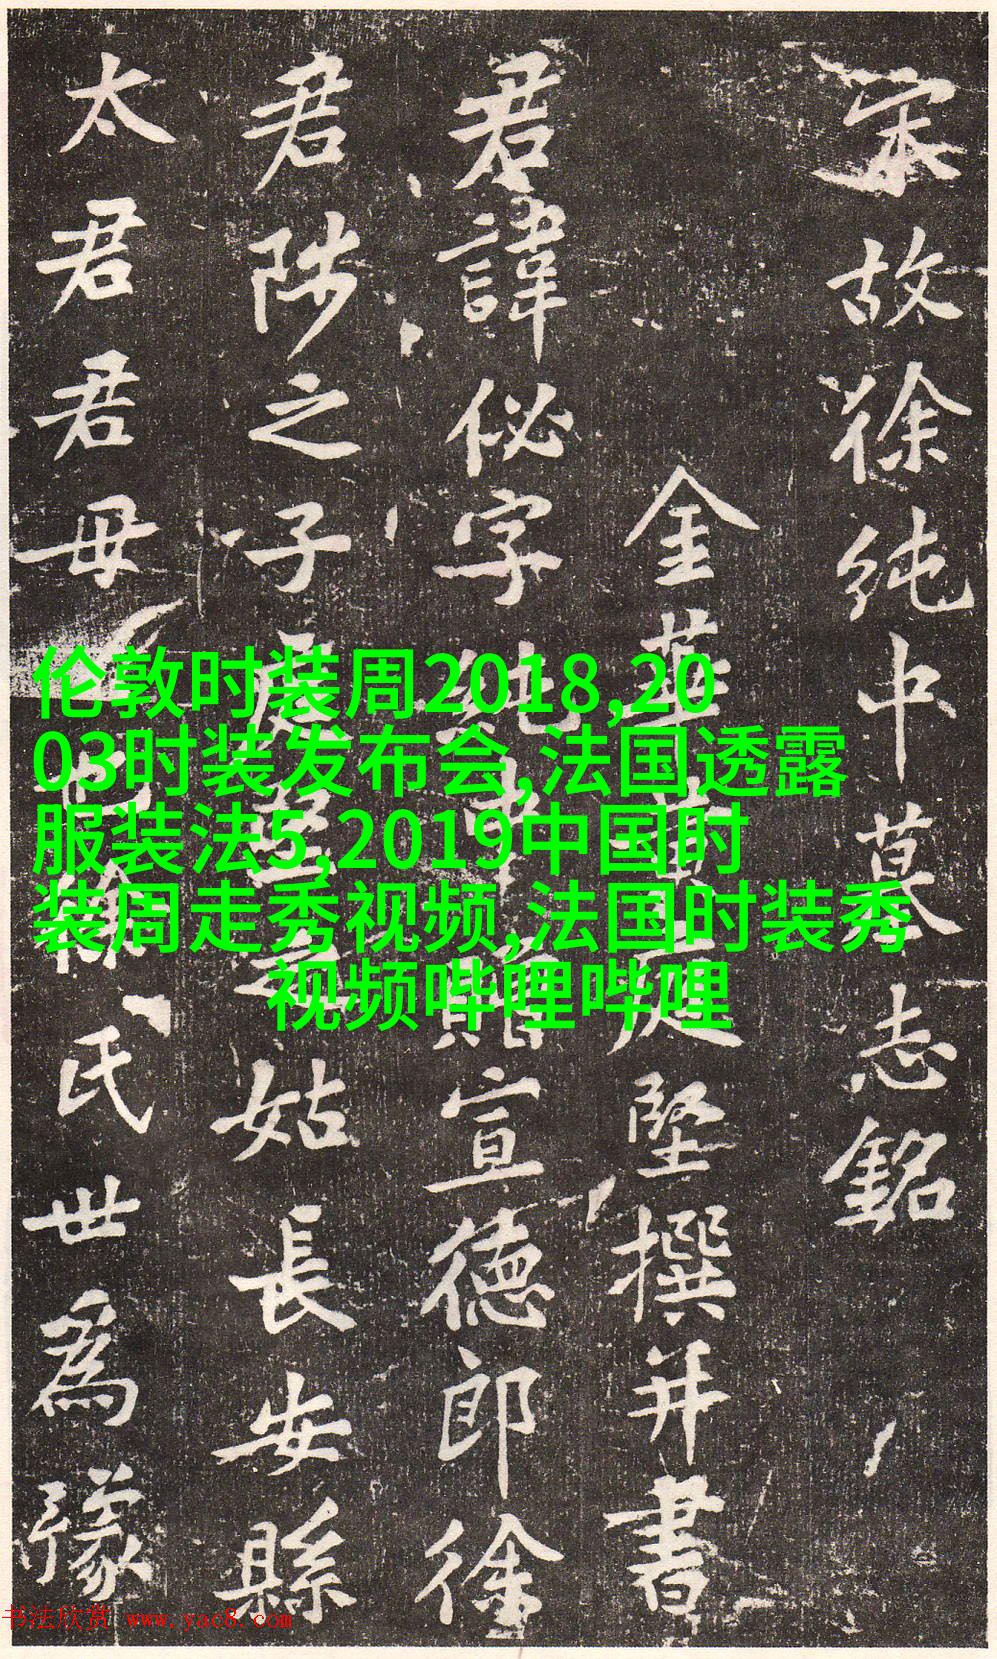 宋故徐純中墓志銘
金華黄庭堅撰并書
君諱佖字純中贈宣德郎徐
君陟之子處姑長安縣
太君君母徐氏世為豫
伦敦时装周2018,20
03时装发布会,法国透露
服装法5,2019中国时
装周走秀视频,法国时装秀
视频哔哩哔哩
书法欣赏 www.yac8.com